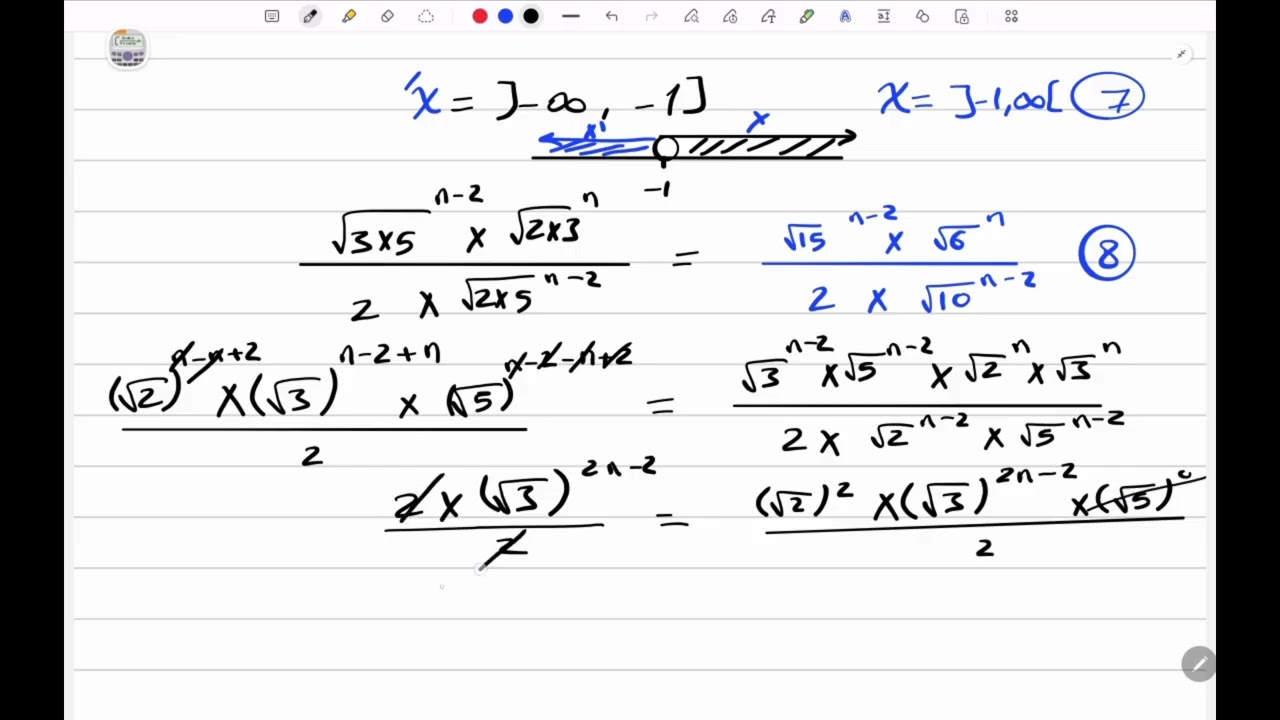 x́ = ]-∞, -1] x = ]-1, ∞[ 7
x' x
-1
√(3×5)^(n-2) × √(2×3)^n / 2 × √(2×5)^(n-2) = √15^(n-2) × √6^n / 2 × √10^(n-2) 8
(√2)^(n-n+2) × (√3)^(n-2+n) × (√5)^(n-2-n+2) / 2 = √3^(n-2) × √5^(n-2) × √2^n × √3^n / 2 × √2^(n-2) × √5^(n-2)
2 × (√3)^(2n-2) / 2 = (√2)^2 × (√3)^(2n-2) × (√5)^0 / 2